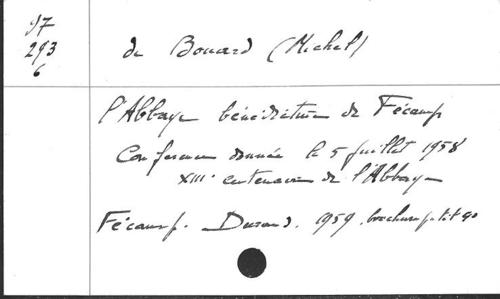 97
293
6
de Bouard (Michel)
l'Abbaye bénédictine de Fécamp
Conférence donnée le 5 juillet 1958
XIIIe centenaire de l'Abbaye
Fécamp. Durand. 1959. brochure petit 4o